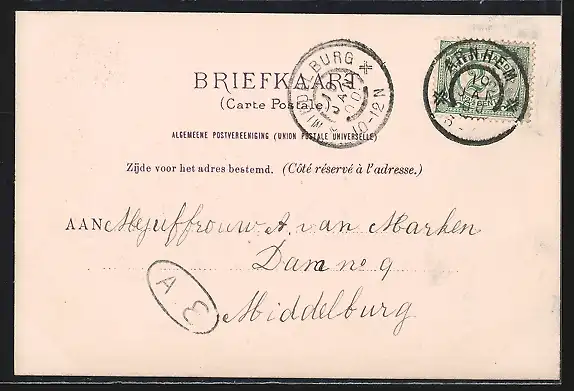 BRIEFKAART
(Carte Postale)
ALGEMEENE POSTVEREENIGING (UNION POSTALE UNIVERSELLE)
Zijde voor het adres bestemd. (Côté réservé à l'adresse.)
AAN Mejuffrouw A. van Marken
Dam no 9
Middelburg
MIDDELBURG 10-12 N
19 JAN 00
ARNHEM
19 JAN
A E